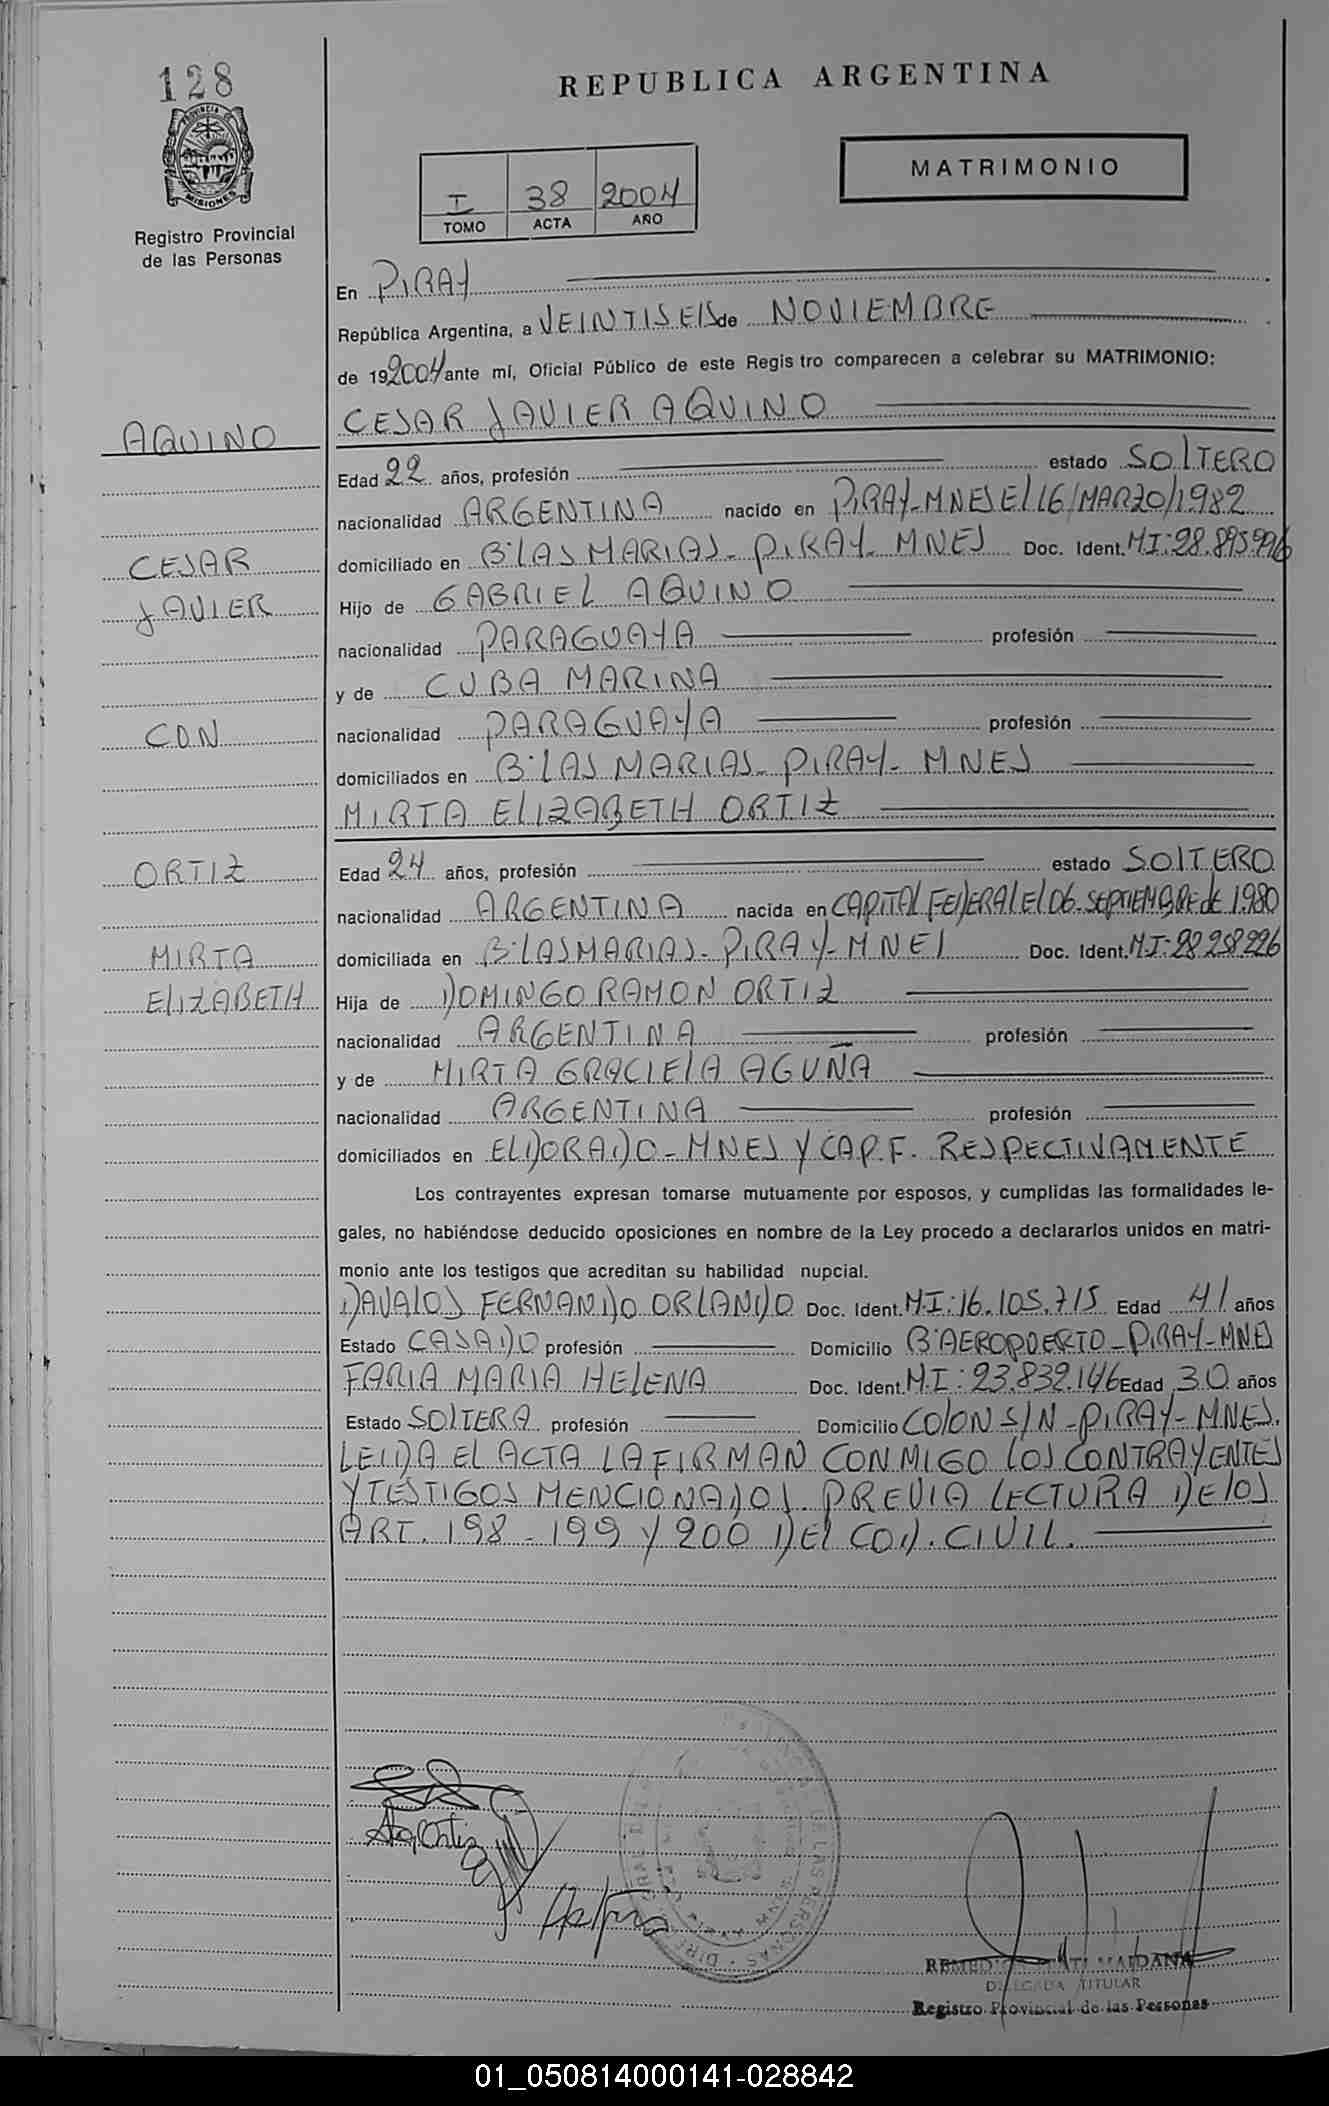 128
PROVINCIA DE
MISIONES
Registro Provincial
de las Personas
REPUBLICA ARGENTINA
MATRIMONIO
I 38 2004
TOMO ACTA AÑO
En PIRAY
República Argentina, a VEINTISEIS de NOVIEMBRE
de 192004 ante mí, Oficial Público de este Registro comparecen a celebrar su MATRIMONIO:
CESAR JAVIER AQUINO
AQUINO
Edad 22 años, profesión estado SOLTERO
nacionalidad ARGENTINA nacido en PIRAY-MNES EL 16/MARZO/1982
CESAR
domiciliado en B: LAS MARIAS- PIRAY- MNES Doc. Ident. M.I: 28.895.996
JAVIER
Hijo de GABRIEL AQUINO
nacionalidad PARAGUAYA profesión
y de CUBA MARINA
CON
nacionalidad PARAGUAYA profesión
domiciliados en B: LAS MARIAS- PIRAY- MNES
MIRTA ELIZABETH ORTIZ
ORTIZ
Edad 24 años, profesión estado SOLTERO
nacionalidad ARGENTINA nacida en CAPITAL FEDERAL EL 06-SEPTIEMBRE de 1980
MIRTA
domiciliada en B: LAS MARIAS- PIRAY-MNES Doc. Ident. M.I: 28 258226
ELIZABETH
Hija de DOMINGO RAMON ORTIZ
nacionalidad ARGENTINA profesión
y de MIRTA GRACIELA AGUÑA
nacionalidad ARGENTINA profesión
domiciliados en ELDORADO-MNES Y CAP.F. RESPECTIVAMENTE
Los contrayentes expresan tomarse mutuamente por esposos, y cumplidas las formalidades le-
gales, no habiéndose deducido oposiciones en nombre de la Ley procedo a declararlos unidos en matri-
monio ante los testigos que acreditan su habilidad nupcial.
DAVALOS FERNANDO ORLANDO Doc. Ident. M.I: 16.105.715 Edad 41 años
Estado CASADO profesión Domicilio B: AEROPUERTO-PIRAY-MNES
FARIA MARIA HELENA Doc. Ident. M.I: 23.832.146 Edad 30 años
Estado SOLTERA profesión Domicilio COLON S/N-PIRAY-MNES.
LEIDA EL ACTA LA FIRMAN CONMIGO LOS CONTRAYENTES
Y TESTIGOS MENCIONADOS PREVIA LECTURA DE LOS
ART. 198-199 Y 200 DEL COD. CIVIL.
Ortiz
DE LAS PERSONAS
MAIDANA
DELEGADA TITULAR
Registro Provincial de las Personas
01_050814000141-028842